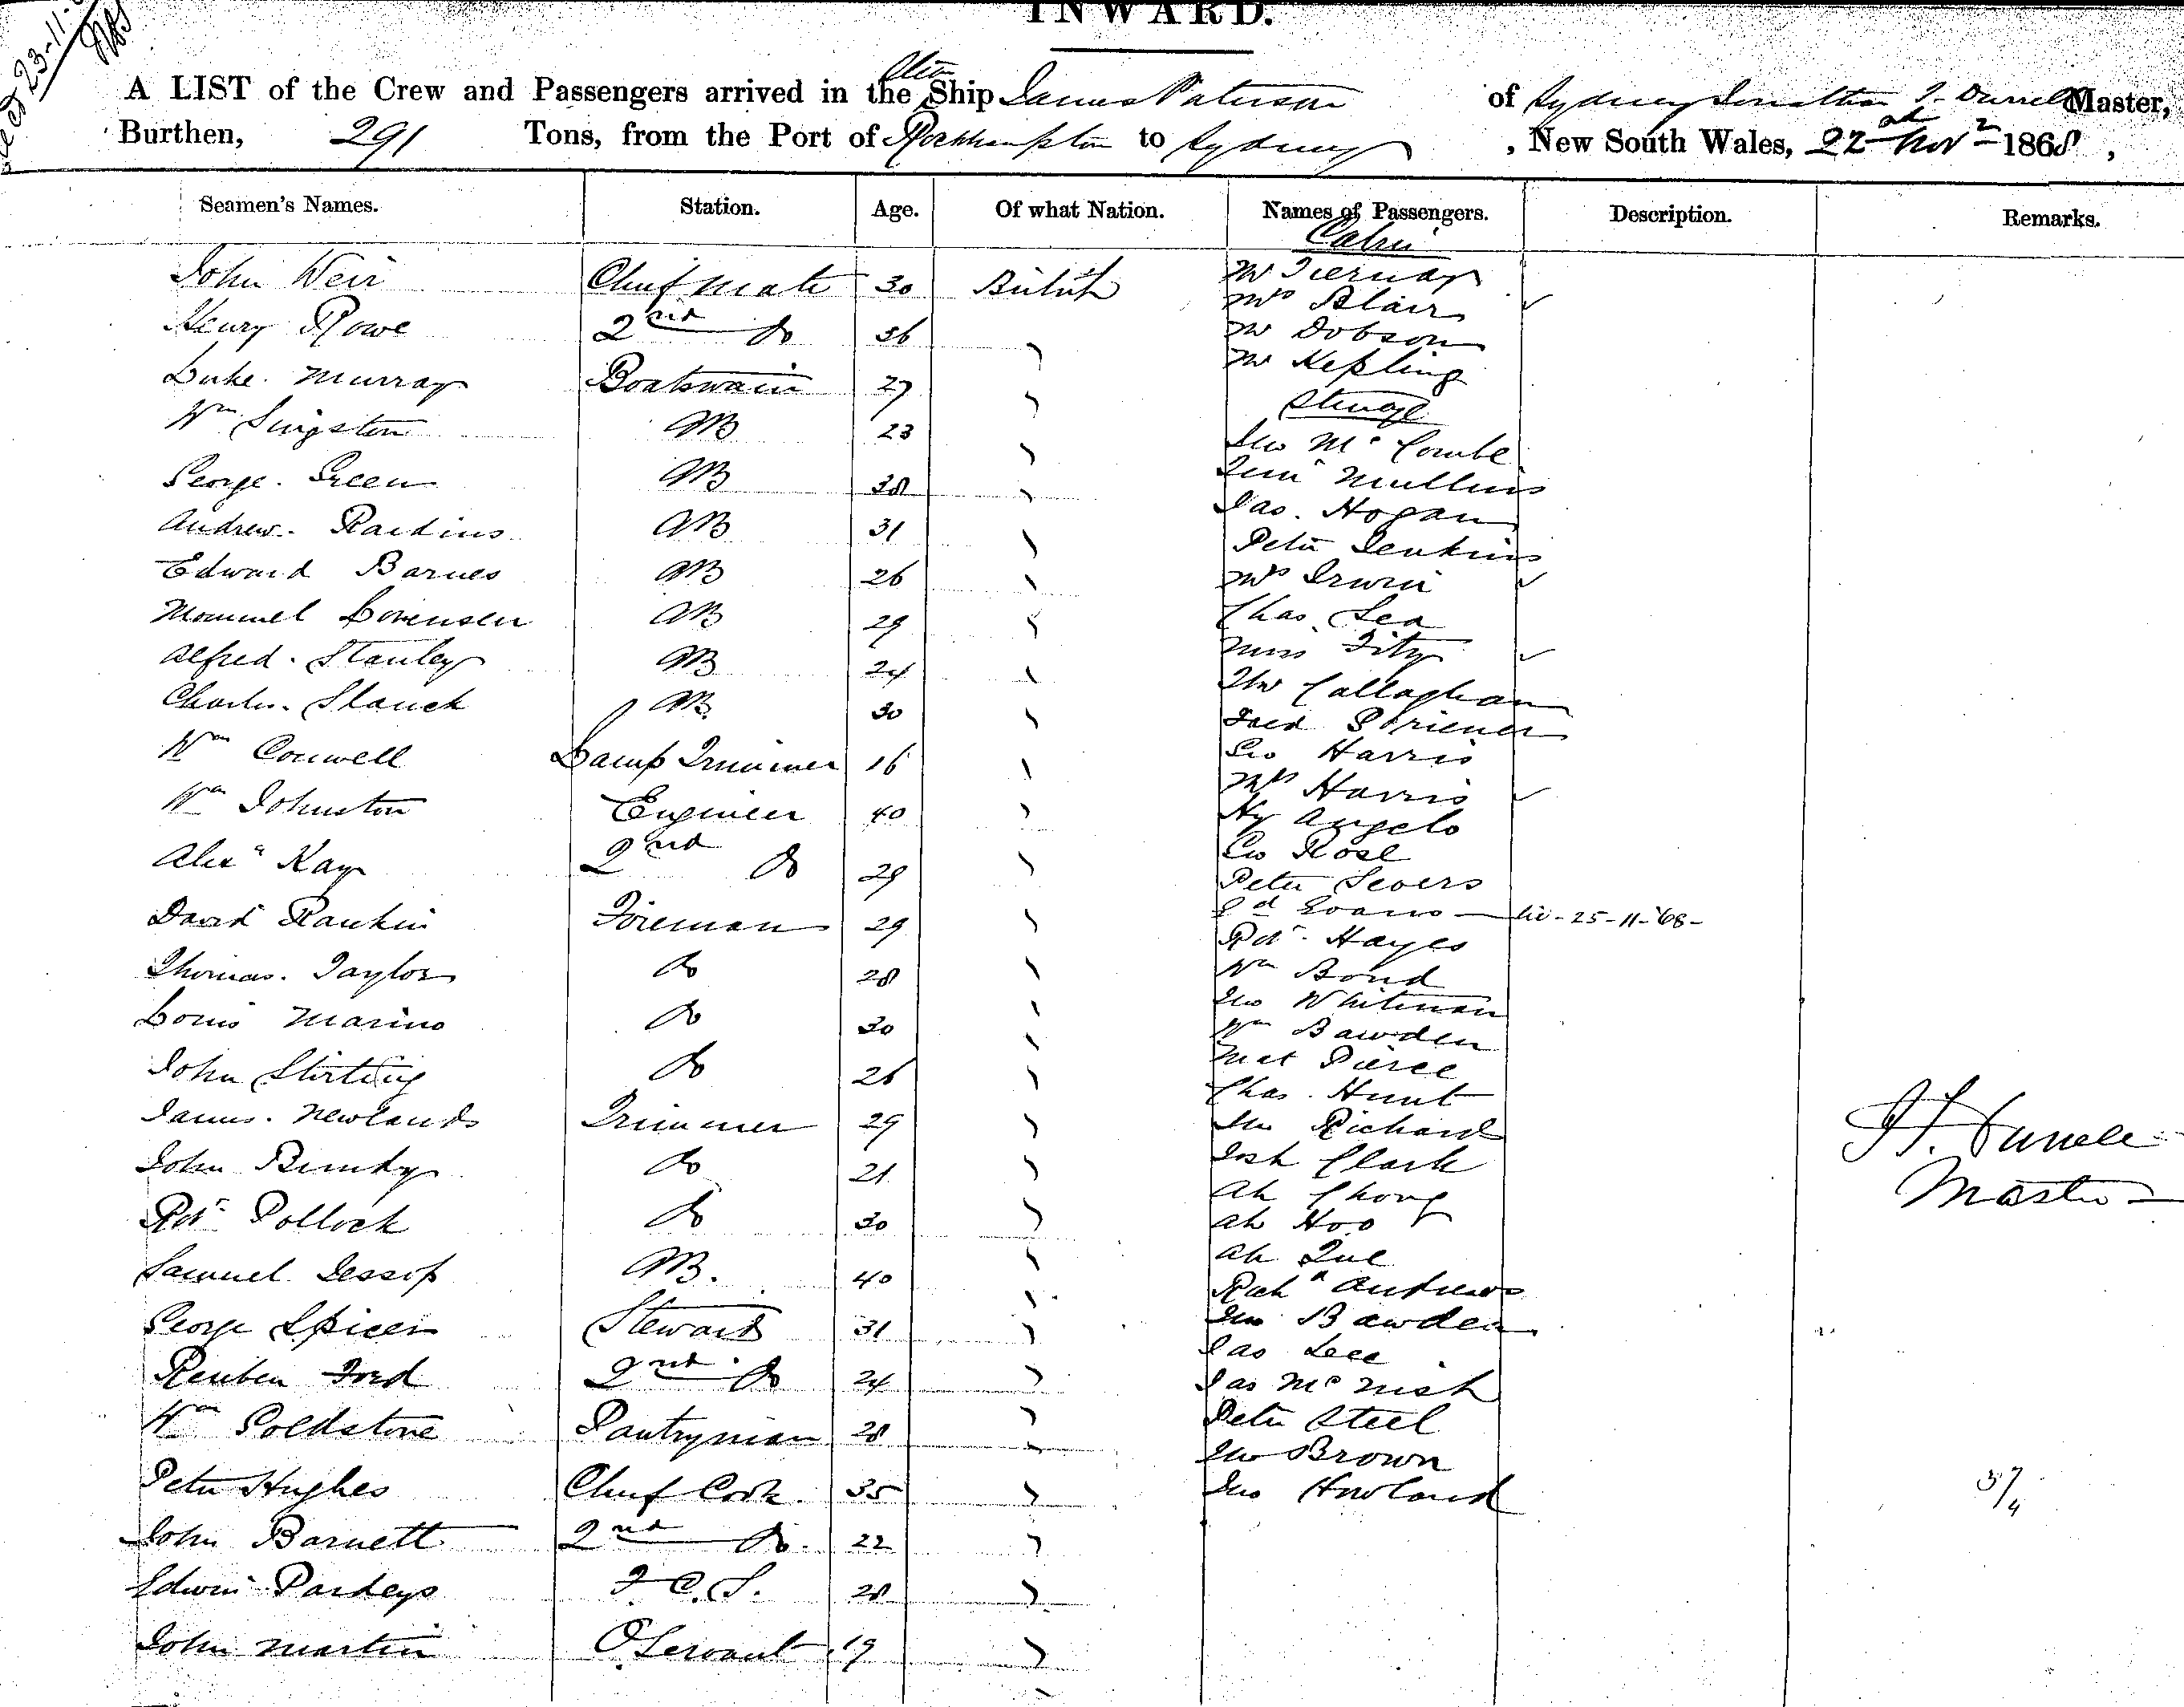 23-11-
INWARD.
A LIST of the Crew and Passengers arrived in the Ship James Paterson of Sydney Jonathan T. Durrell Master,
Burthen, 291 Tons, from the Port of Rockhampton to Sydney, New South Wales, 22 Novr 1868,
Seamen's Names. Station. Age. Of what Nation. Names of Passengers. Description. Remarks.
Cabin
John Weir Chief Mate 30 British Mr Tiernay
Mrs Blair ✓
Henry Rowe 2nd Do 36 " Mr Dobson
Mr Kepling
Luke Murray Boatswain 27 " Steerage
Wm Lingston AB 23 " Jno McCombe
George Green AB 38 " Jas. Hogan
Andrew AB 31 " Peter Jenkins
Edward Barnes AB 26 " Mrs Irwin ✓
Sorensen AB 29 " Chas Lea
Alfred Stanley AB 24 " Miss Fitz ✓
Callaghan
Charles AB 30 " Fred
Geo Harris
Wm Conwell Lamp Trimmer 16 " Mrs Harris ✓
Wm Johnston Engineer 40 " Hy Angelo
Geo Rose
Alexr Kay 2nd Do 29 " Peter Severs
David Rankin Fireman 29 " Ed Evans — 25-11-'68-
Robt Hayes
Thomas Taylor Do 28 " Wm Bond
Jno Whiteman
Louis Marino Do 30 " Wm Bawden
Mat Pierce
John Stirling Do 26 " Chas. Hunt
James Newlands Trimmer 29 " Jno Richard
John Do 21 " Josh Clark
Ah Chong
Robt Pollock Do 30 " Ah Hoo
Samuel Jessop AB. 40 " Ah Que
Richd Andrews
George Spicer Steward 31 " Jno Bawden
Jas Lee
Reuben Ford 2nd Do 24 " Jas McNish
Wm Goldstone Pantryman 28 " Peter Steel
Jno Brown
Peter Hughes Chief Cook 35 " Jno Howland
John Barnett 2nd Do. 22 "
Edwin Pardeys F.C.S. 28 "
John Martin O. Servant 19 "
J T. Durrell
Master
37/4